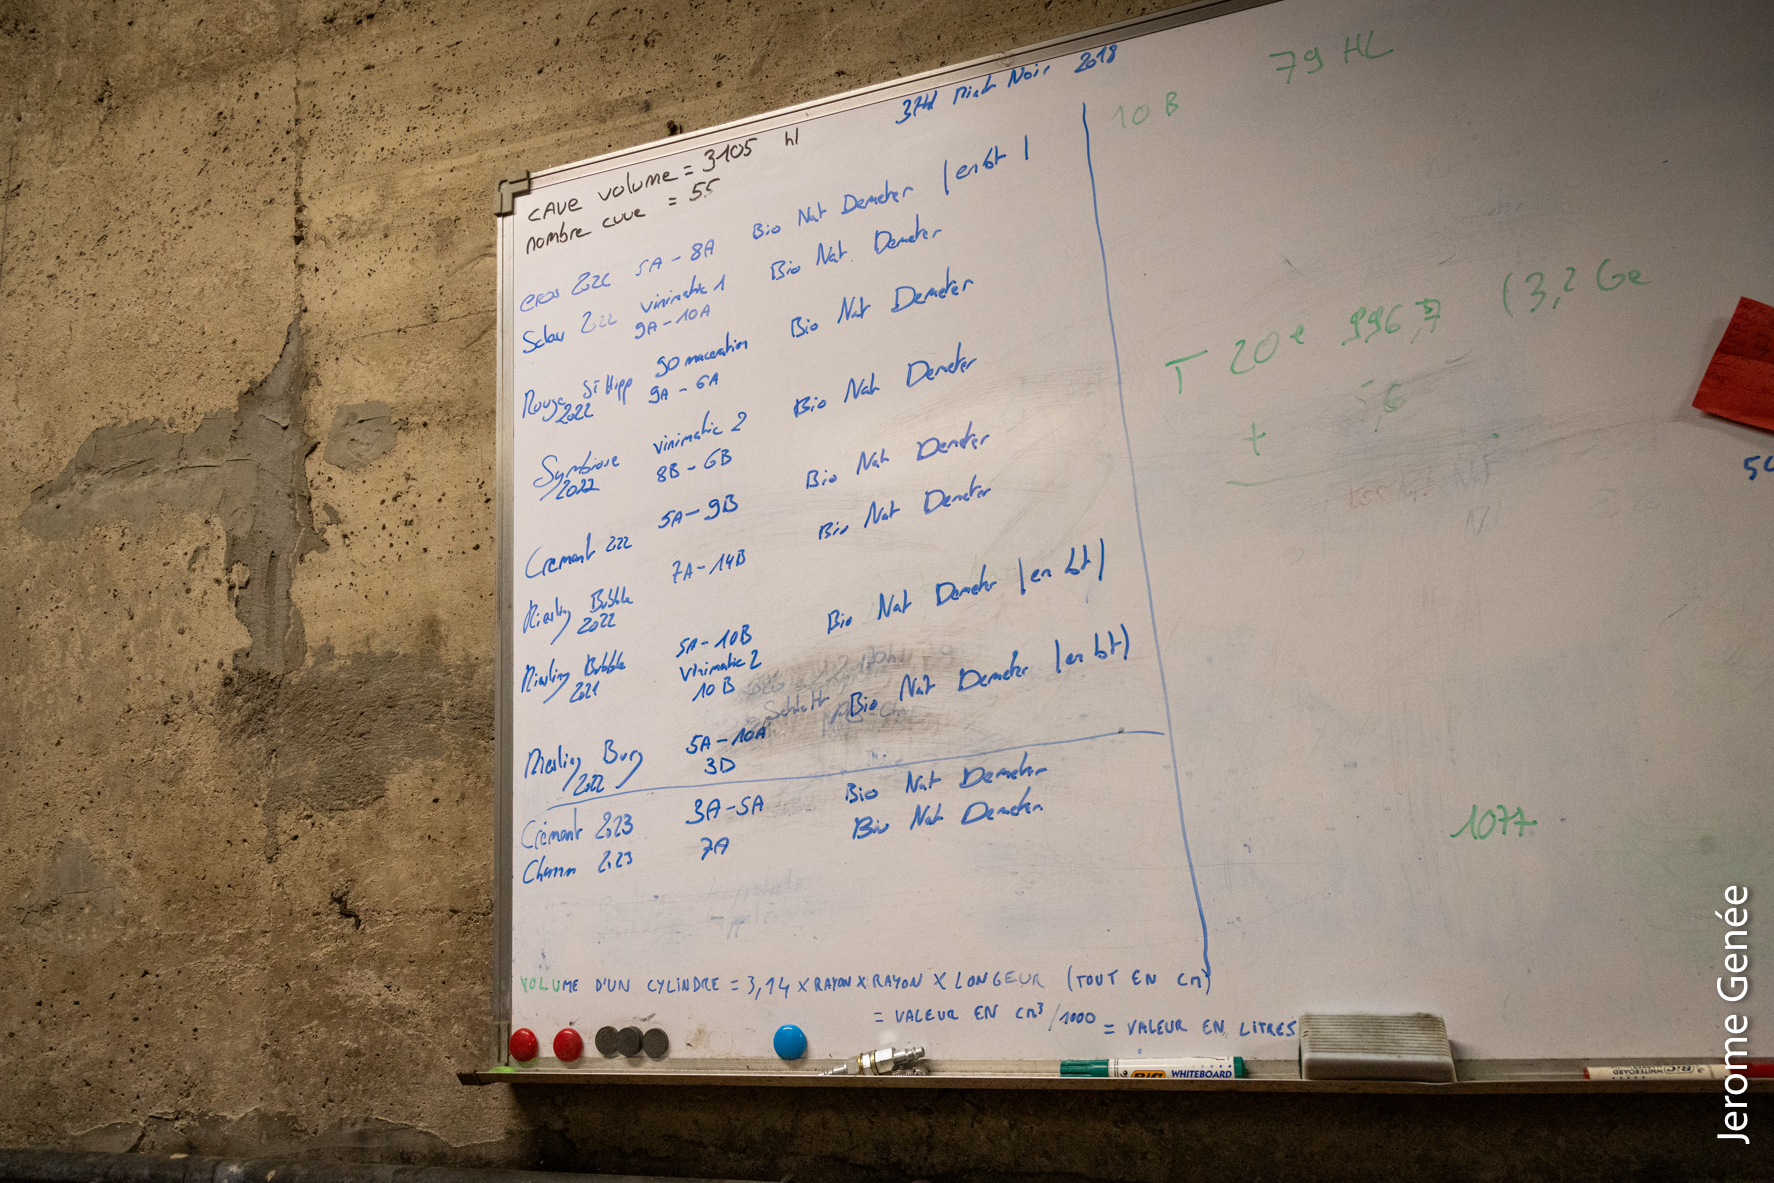 37hl Pinot Noir 2018
CAVE VOLUME = 3105 hl
nombre cuve = 55
eros 5A - 8A Bio Nat Demeter (en bt)
vinimatic 1 Bio Nat. Demeter
9A - 10A
Rouge St Hipp 90 maceration Bio Nat Demeter
2022 9A - 6A
Symbiose vinimatic 2 Bio Nat Demeter
2022 8B - 6B
Cremant 222 5A - 9B Bio Nat Demeter
Riesling Bubble 7A - 14B Bio Nat Demeter
2022
Riesling Bubble 5A - 10B Bio Nat Demeter (en bt)
2021 vinimatic 2
10 B
Riesling Burg 5A - 10A Bio Nat Demeter (en bt)
2022 3D
Crémant 2023 3A - 5A Bio Nat Demeter
Charm 2023 7A Bio Nat Demeter
VOLUME D'UN CYLINDRE = 3,14 x RAYON x RAYON x LONGEUR (TOUT EN cm)
= VALEUR EN cm³ /1000 = VALEUR EN LITRES
79 HL
10 B
T 20e 996,7 (3,2 Ge
+ 5,6
1077
BIC WHITEBOARD
BIC WHITEBOARD
Jerome Genée